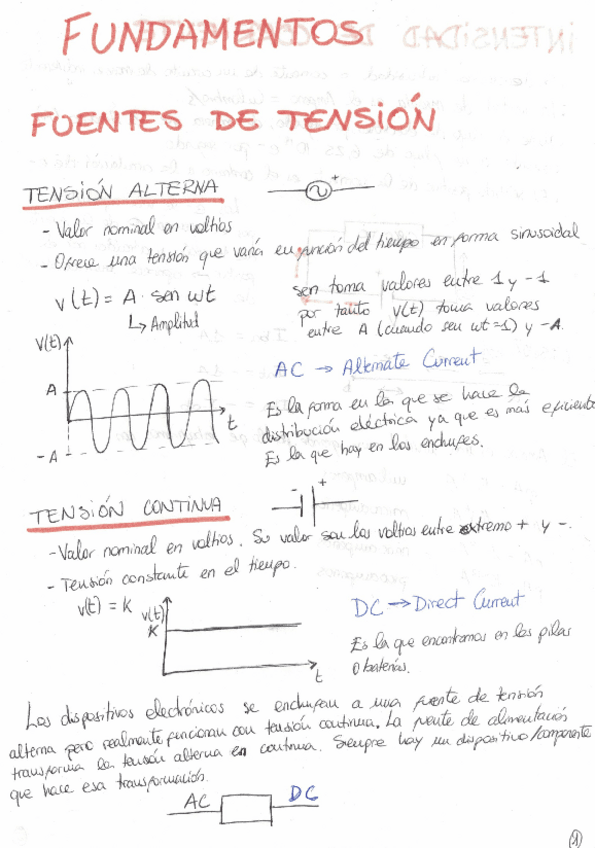 FUNDAMENTOS
FUENTES DE TENSIÓN
TENSIÓN ALTERNA
+
- Valor nominal en voltios
- Ofrece una tensión que varía en función del tiempo en forma sinusoidal
v(t) = A · sen wt
↳ Amplitud
sen toma valores entre 1 y -1
por tanto v(t) toma valores
entre A (cuando sen wt = 1) y -A.
V(t)
A
-A
t
AC → Alternate Current
Es la forma en la que se hace la
distribución eléctrica ya que es más eficiente
Es la que hay en los enchufes.
TENSIÓN CONTINUA
- +
- Valor nominal en voltios. Su valor son los voltios entre extremo + y -.
- Tensión constante en el tiempo.
v(t) = K
v(t)
K
t
DC → Direct Current
Es la que encontramos en las pilas
o baterías.
Los dispositivos electrónicos se enchufan a una fuente de tensión
alterna pero realmente funcionan con tensión continua. La fuente de alimentación
transforma la tensión alterna en continua. Siempre hay un dispositivo/componente
que hace esa transformación.
AC DC
1